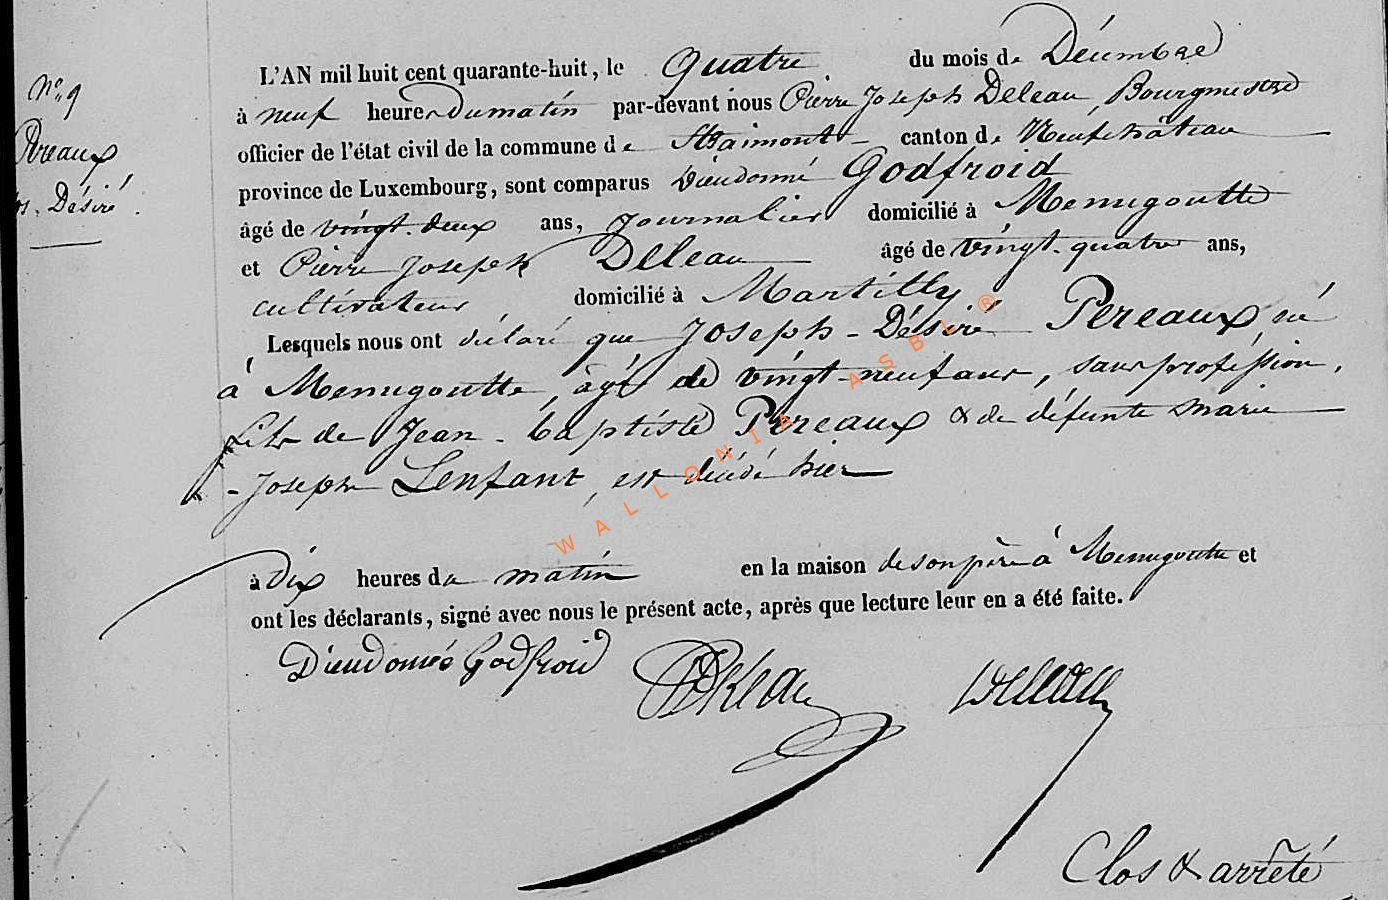 N°. 9
Pereaux
Jos. Désiré.
L'AN mil huit cent quarante-huit, le Quatre du mois de Décembre
à neuf heures du matin par-devant nous Pierre Joseph Deleau, Bourgmestre
officier de l'état civil de la commune de Straimont canton de Neufchâteau
province de Luxembourg, sont comparus Dieudonné Godfroid
âgé de vingt-deux ans, Journalier domicilié à Menugoutte
et Pierre Joseph Deleau âgé de vingt-quatre ans,
cultivateur domicilié à Martilly.
Lesquels nous ont déclaré que Joseph-Désiré Pereaux, né
à Menugoutte, âgé de vingt-neuf ans, sans profession,
fils de Jean-baptiste Pereaux & de défunte marie
-Joseph Lenfant, est décédé hier
à Dix heures du matin en la maison de son père à Menugoutte et
ont les déclarants, signé avec nous le présent acte, après que lecture leur en a été faite.
Dieudonné Godfroid PJDeleau Deleau
Clos & arrêté
WALLONIA ASBL ®